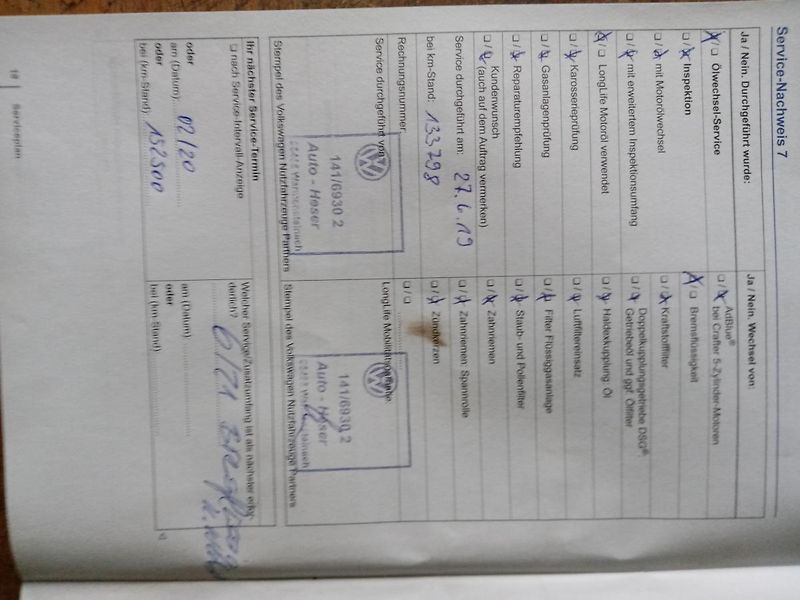 Service-Nachweis 7
Ja / Nein. Durchgeführt wurde:
Ölwechsel-Service
Inspektion
mit Motorölwechsel
mit erweitertem Inspektionsumfang
LongLife Motoröl verwendet
Karosserieprüfung
Gasanlagenprüfung
Reparaturempfehlung
Kundenwunsch
(auch auf dem Auftrag vermerken)
Service durchgeführt am: 27.6.19
bei km-Stand: 133798
Rechnungsnummer:
Service durchgeführt von:
141/6930 2
Auto - Heser
Stempel des Volkswagen Nutzfahrzeuge Partners
Ja / Nein. Wechsel von:
AdBlue®
bei Crafter 5-Zylinder-Motoren
Bremsflüssigkeit
Kraftstofffilter
Doppelkupplungsgetriebe DSG®
Getriebeöl und ggf. Ölfilter
Haldexkupplung: Öl
Luftfiltereinsatz
Filter Flüssiggasanlage
Staub- und Pollenfilter
Zahnriemen
Zahnriemen: Spannrolle
Zündkerzen
LongLife Mobilitätsgarantie:
141/6930 2
Auto - Heser
Stempel des Volkswagen Nutzfahrzeuge Partners
Ihr nächster Service-Termin
nach Service-Intervall-Anzeige
oder
am (Datum): 02/20
oder
bei (km-Stand): 152500
Welcher Service/Zusatzumfang ist als nächster erfor-
derlich?
6/21
am (Datum)
oder
bei (km-Stand):
18
Serviceplan